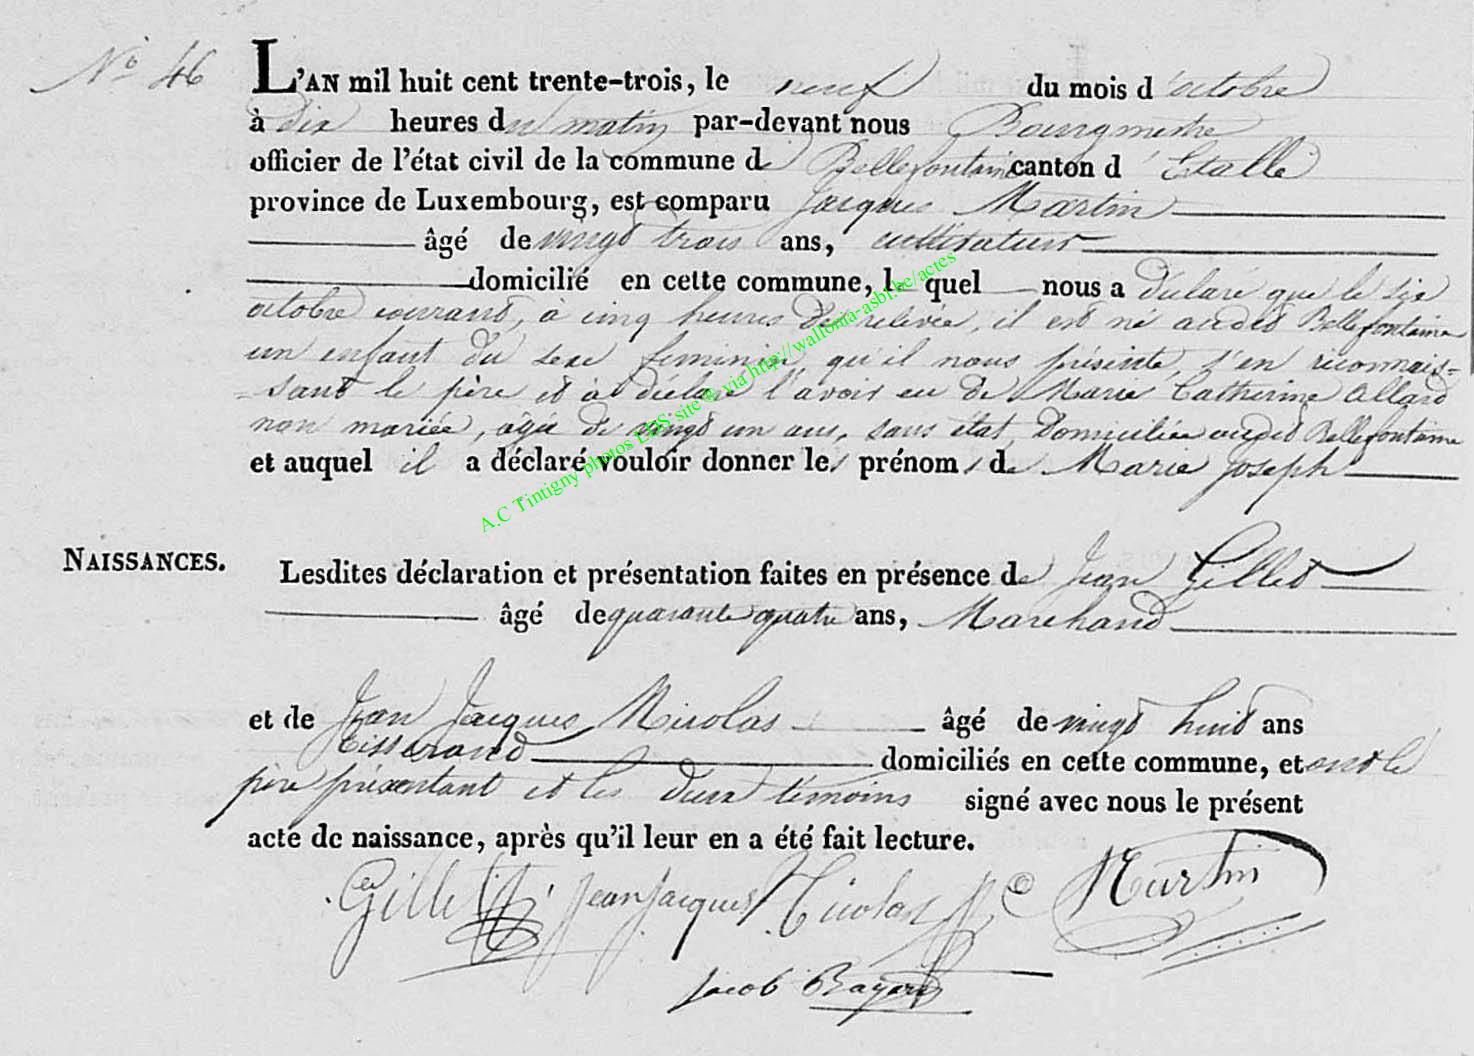 N° 46
L'AN mil huit cent trente-trois, le neuf du mois d'octobre
à dix heures du matin par-devant nous Bourgmestre
officier de l'état civil de la commune de Bellefontaine canton d'Etalle
province de Luxembourg, est comparu Jacques Martin
âgé de vingt trois ans, cultivateur
domicilié en cette commune, le quel nous a déclaré que le six
octobre courant, à cinq heures de relevée, il est né audit Bellefontaine
un enfant du sexe feminin qu'il nous présente, s'en reconnais=
=sant le père et a déclaré l'avoir eu de Marie Catherine Allard
non mariée, agée de vingt un ans, sans état, domiciliée audit Bellefontaine
et auquel il a déclaré vouloir donner les prénoms de Marie Joseph
A.C Tintigny photos EHS site & via http://wallonia-asbl.be/actes
NAISSANCES.
Lesdites déclaration et présentation faites en présence de Jean Gillet
âgé de quarante quatre ans, Marchand
et de Jean Jacques Nicolas âgé de vingt huit ans
tisserand domiciliés en cette commune, et ont le
père présentant et les deux témoins signé avec nous le présent
acte de naissance, après qu'il leur en a été fait lecture.
Gillet Jean Jacques Nicolas Martin
Jacob Bayard